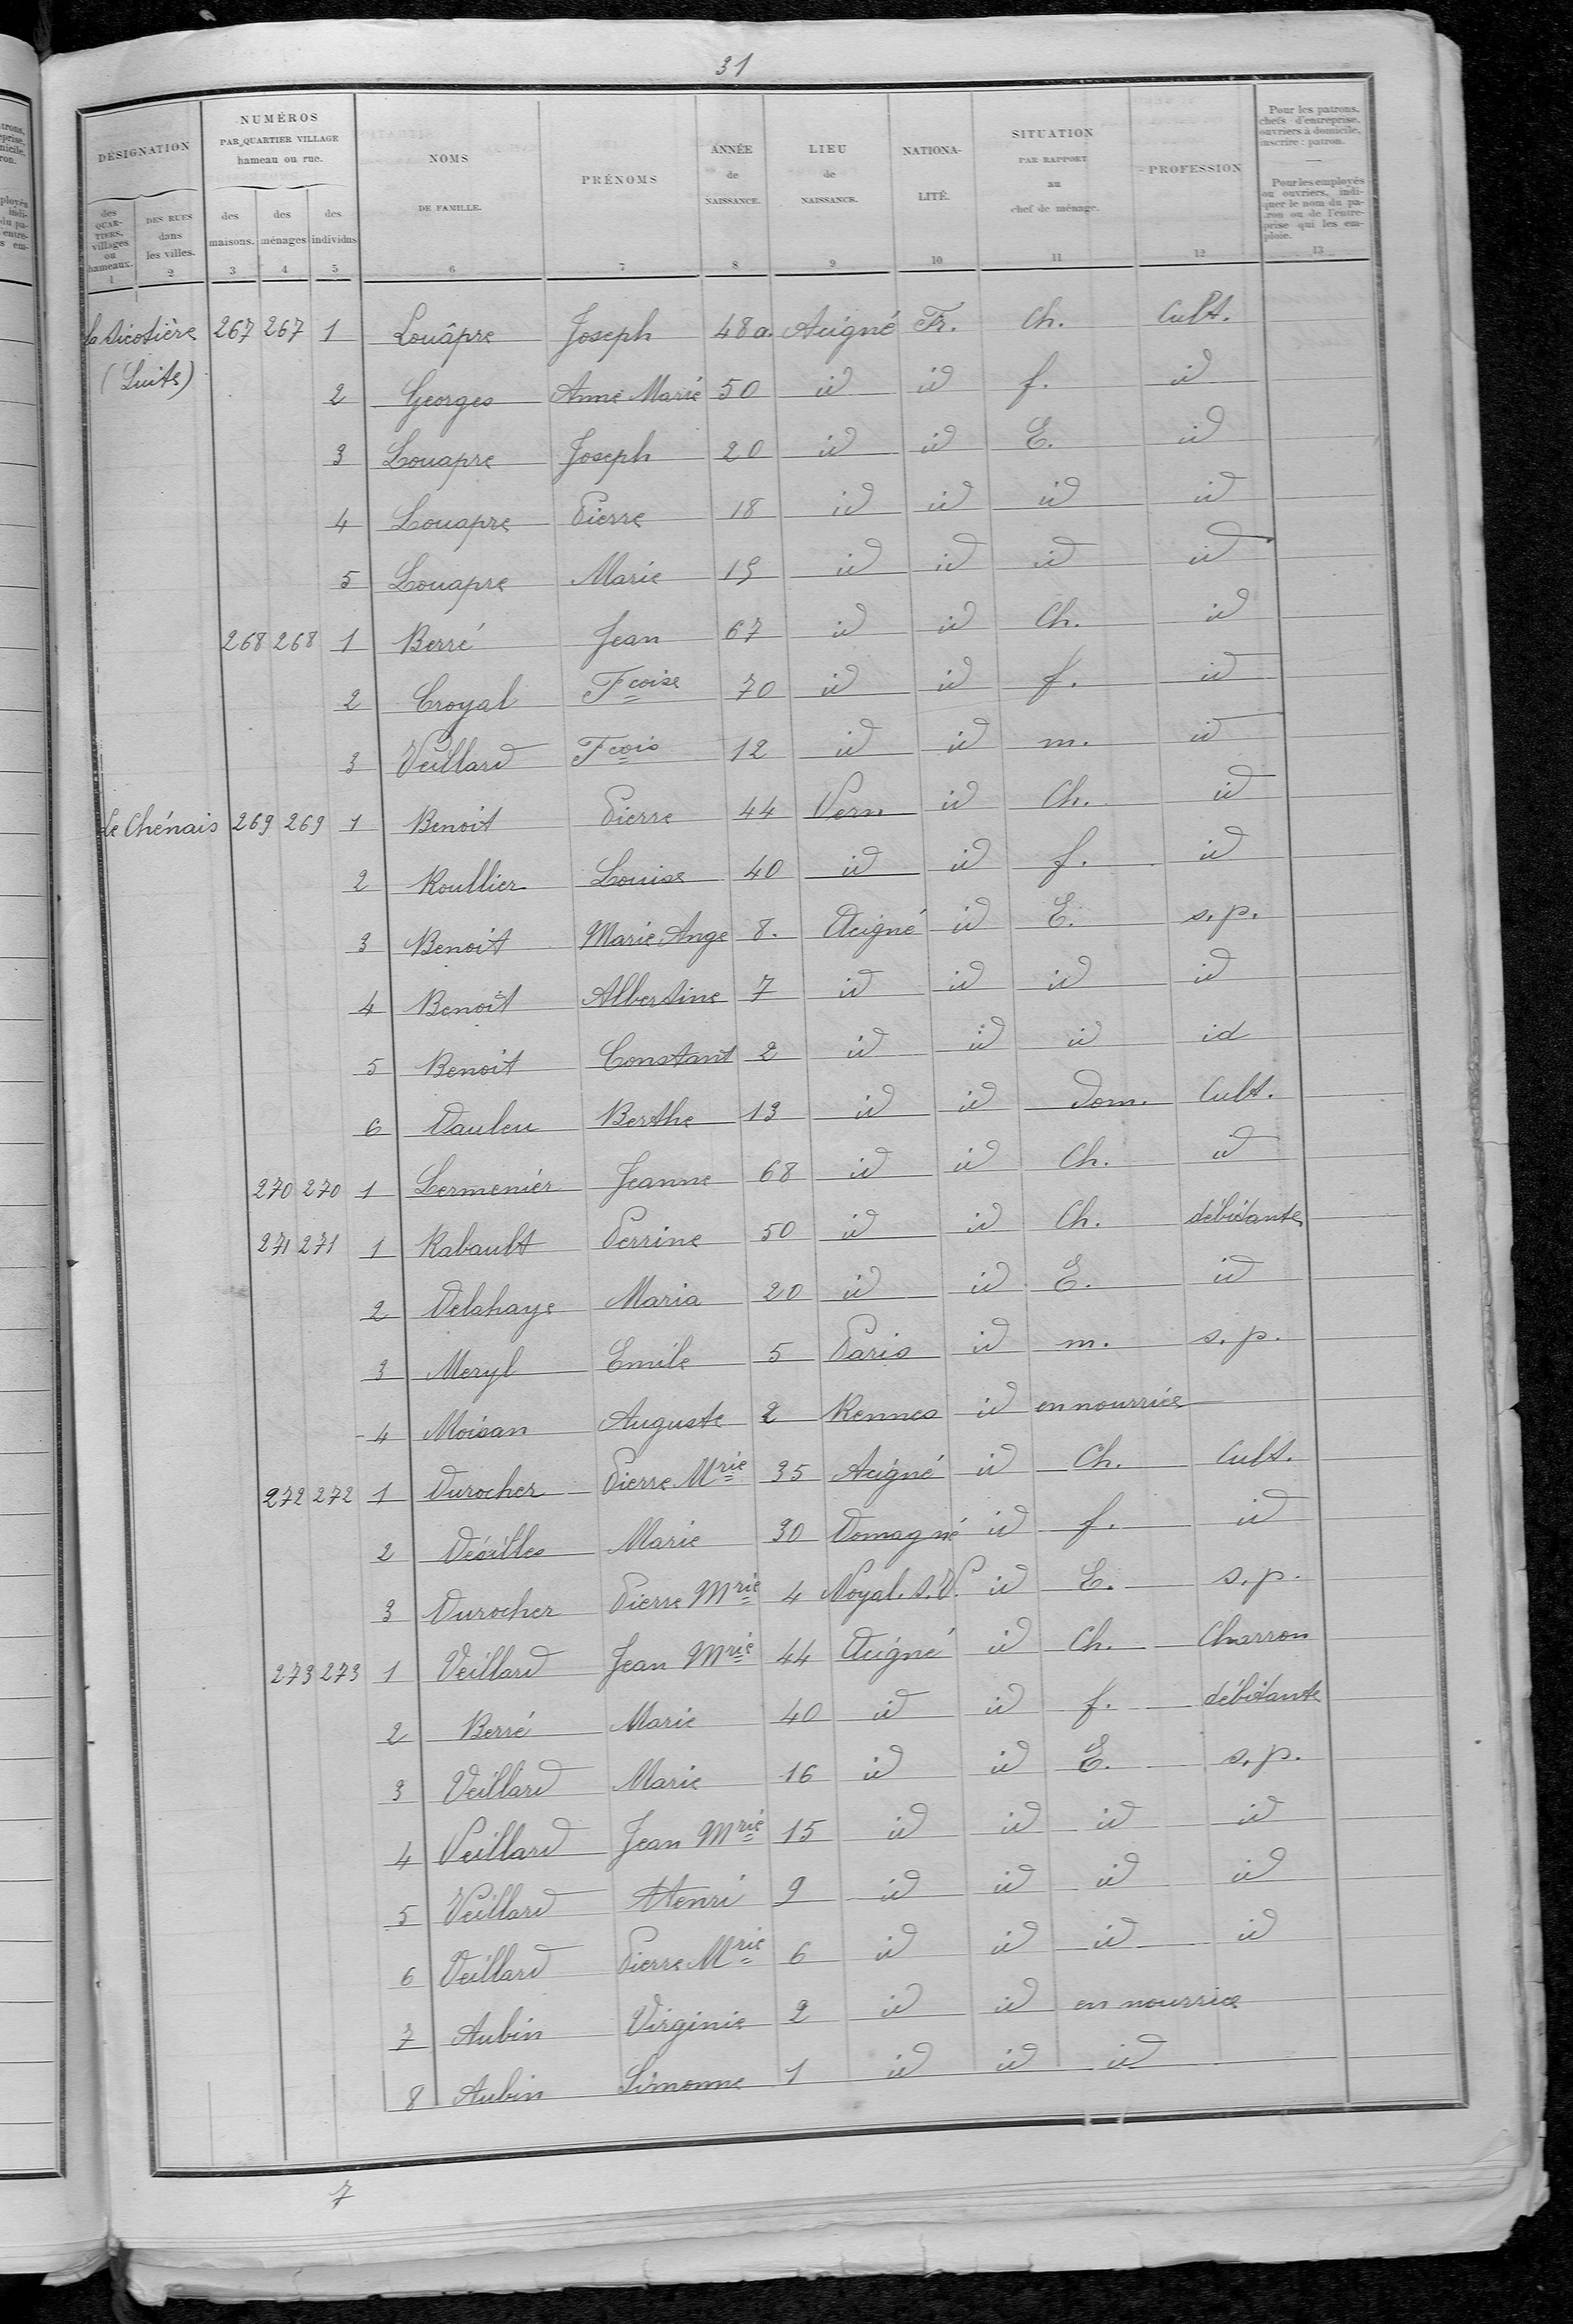 31
DÉSIGNATION
NUMÉROS
PAR QUARTIER VILLAGE
hameau ou rue.
NOMS
DE FAMILLE.
PRÉNOMS
ANNÉE
de
NAISSANCE.
LIEU
de
NAISSANCE.
NATIONA-
LITÉ.
SITUATION
PAR RAPPORT
au
chef de ménage.
PROFESSION
Pour les patrons,
chefs d'entreprise,
ouvriers à domicile,
inscrire : patron.
Pour les employés
ou ouvriers, indi-
quer le nom du pa-
tron ou de l'entre-
prise qui les em-
ploie.
des
QUAR-
TIERS,
villages
ou
hameaux.
DES RUES
dans
les villes.
des
maisons.
des
ménages
des
individus
1 2 3 4 5 6 7 8 9 10 11 12 13
la Sicotière 267 267 1 Louâpre Joseph 48 a. Acigné Fr. Ch. Cult.
(Suite) 2 Georges Anne Marie 50 id id f. id
3 Louapre Joseph 20 id id E. id
4 Louapre Pierre 18 id id id id
5 Louapre Marie 15 id id id id
268 268 1 Berré Jean 67 id id Ch. id
2 Croyal Fcoise 70 id id f. id
3 Veillard Fcois 12 id id m. id
Le Chénais 269 269 1 Benoit Pierre 44 Vern id Ch. id
2 Roullier Louise 40 id id f. id
3 Benoit Marie Ange 8. Acigné id E. s. p.
4 Benoit Albertine 7 id id id id
5 Benoit Constant 2 id id id id
6 Dauleu Berthe 13 id id dom. Cult.
270 270 1 Lermenier Jeanne 68 id id Ch. id
271 271 1 Rabault Perrine 50 id id Ch. débitante
2 Delahaye Maria 20 id id E. id
3 Meryl Emile 5 Paris id m. s. p.
4 Moisan Auguste 2 Rennes id en nourrice
272 272 1 Durocher Pierre Mrie 35 Acigné id Ch. Cult.
2 Désilles Marie 30 Domagné id f. id
3 Durocher Pierre Mrie 4 Noyal. s. V. id E. s. p.
273 273 1 Veillard Jean Mrie 44 Acigné id Ch. Charron
2 Berré Marie 40 id id f. débitante
3 Veillard Marie 16 id id E. s. p.
4 Veillard Jean Mrie 15 id id id id
5 Veillard Henri 9 id id id id
6 Veillard Pierre Mrie 6 id id id id
7 Aubin Virginie 2 id id en nourrice
8 Aubin Simonne 1 id id id
7